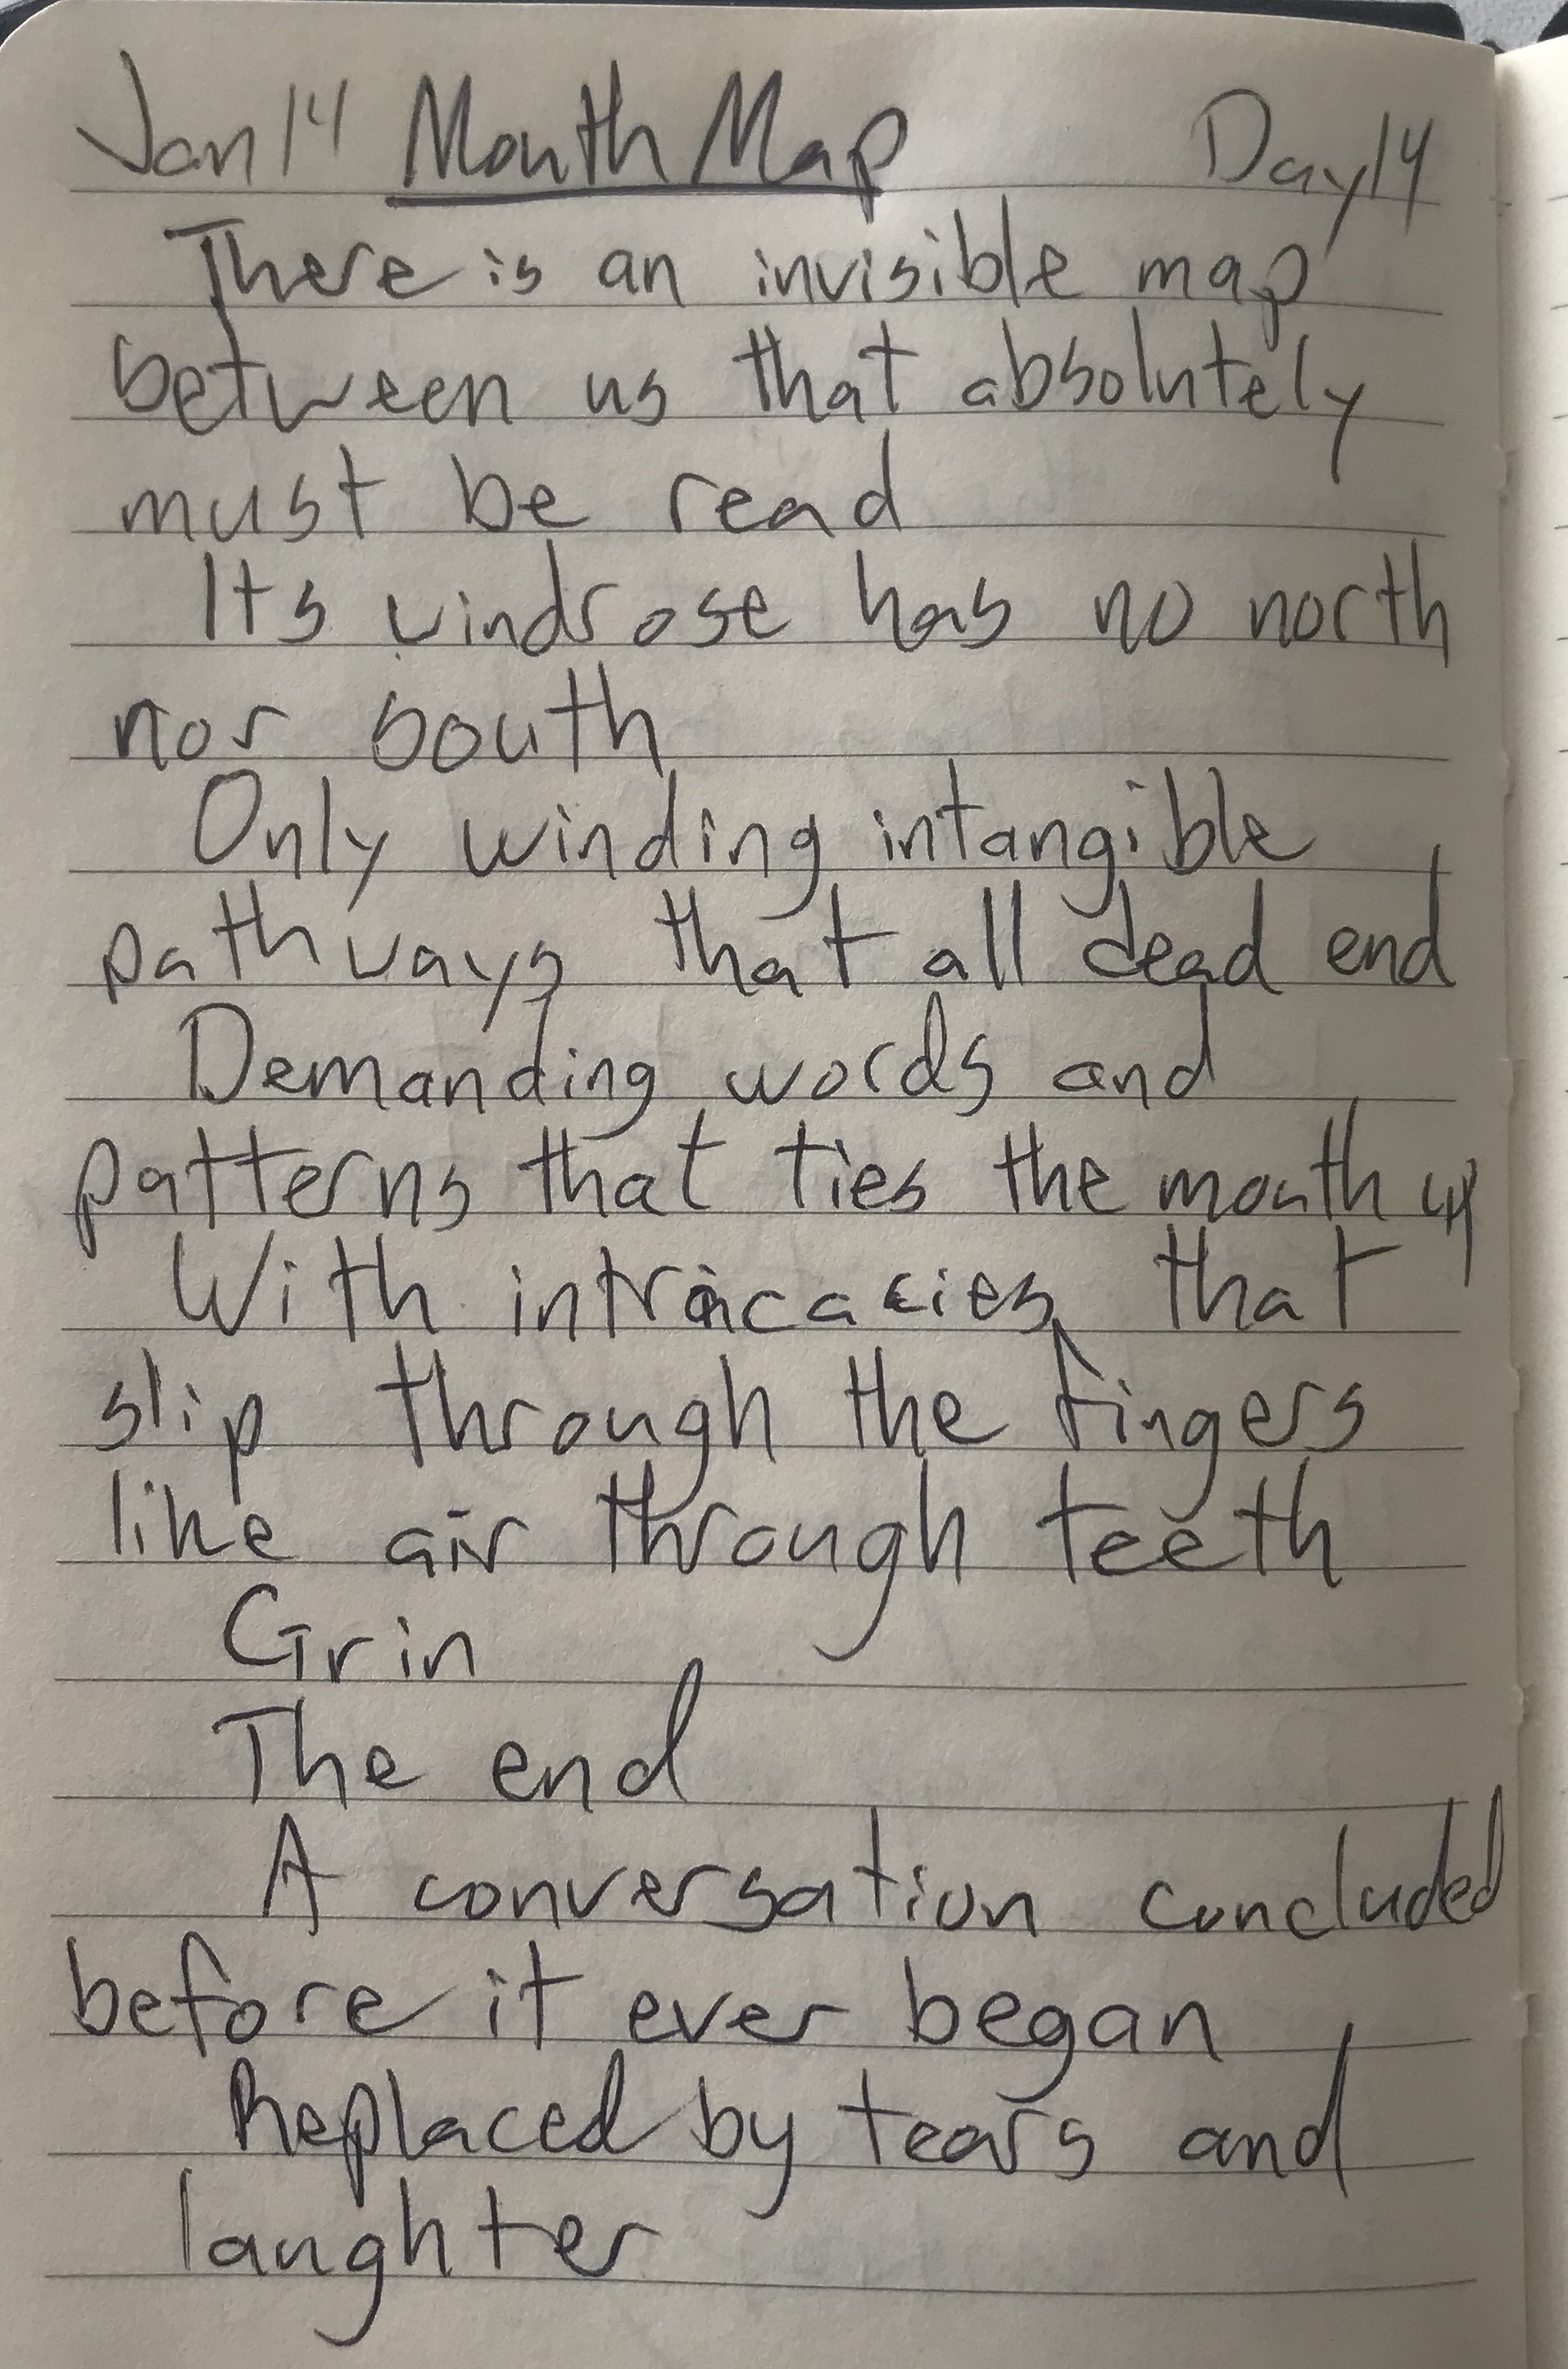 Jan 14 Mouth Map Day 14
There is an invisible map
between us that absolutely
must be read
Its windrose has no north
nor south
Only winding intangible
pathways that all dead end
Demanding words and
patterns that ties the mouth up
With intricacies that
slip through the fingers
like air through teeth
Grin
The end
A conversation concluded
before it ever began
Replaced by tears and
laughter